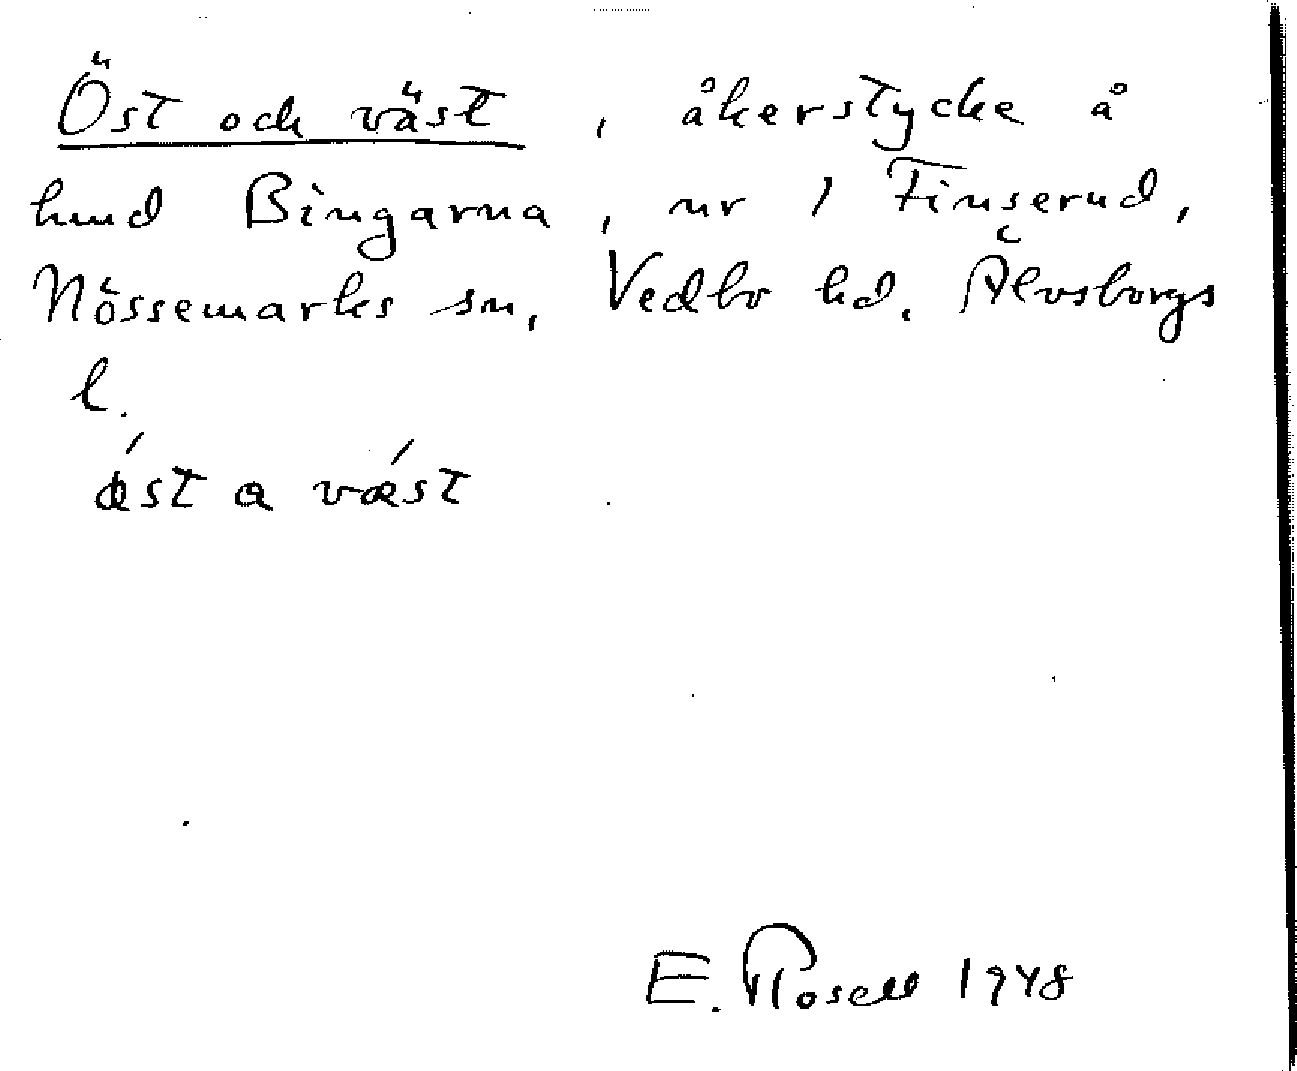 Öst och väst, åkerstycke å
hmd Bingarna, nr 1 Finserud,
Nössemarks sn, Vedbo hd. Älvsborgs
l.
ǿst a vǽst
E. Rosell 1948